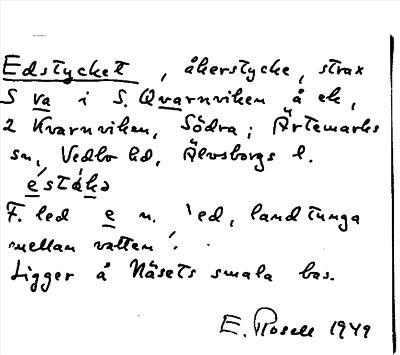 Edstycket, åkerstycke, strax
S va i S. Qvarnviken å ek,
2 Kvarnviken, Södra; Ärtemarks
sn, Vedbo hd, Älvsborgs l.
éstákə
F. led e n. 'ed, landtunga
mellan vatten'.
Ligger å Näsets smala bas.
E. Rosell 1949